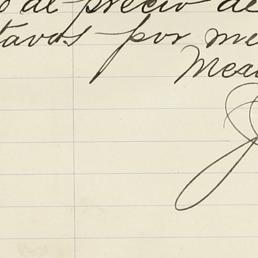 al precio de
tavos por me